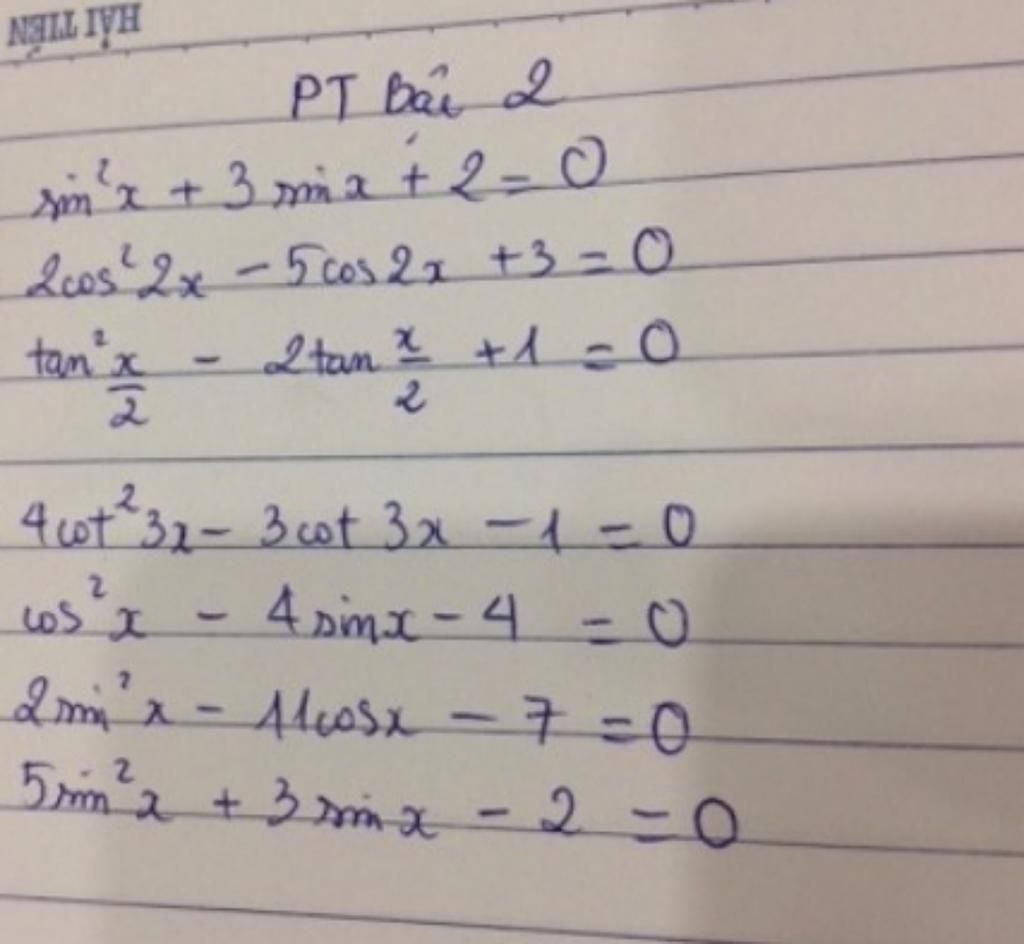 HẢI TIẾN
PT bậc 2
sin²x + 3 sin x + 2 = 0
2cos²2x - 5cos2x + 3 = 0
tan²x/2 - 2tan x/2 + 1 = 0
4cot²3x - 3cot 3x - 1 = 0
cos²x - 4sinx - 4 = 0
2sin²x - 11cosx - 7 = 0
5sin²x + 3 sin x - 2 = 0